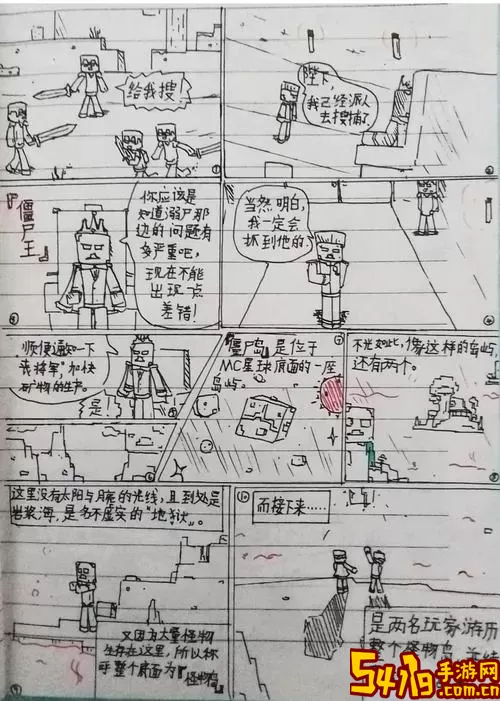 给我搜
①
陛下,
我已经派人
去搜捕了
②
『僵尸王』
你应该是
知道溺尸那
边的问题有
多严重吧,
现在不能
出现一点
差错!
③
当然明白,
我一定会
抓到他的
④
顺便通知一下
"我将军"加快
矿物的生产。
(是!)
⑤
⑥
"僵尸岛"是位于
MC星球底面的一座
岛屿。
⑦
不光如此,像这样的岛屿
还有两个。
⑧
这里没有太阳与月亮的光线,且到处是
岩浆海,是名不虚实的"地狱"。
又因为大量怪物
生存在这里,所以称
呼整个底面为『怪物岛』
⑨
⑩
而接下来……
是两名玩家游历
整个怪物岛
5419手游网
.com.cn